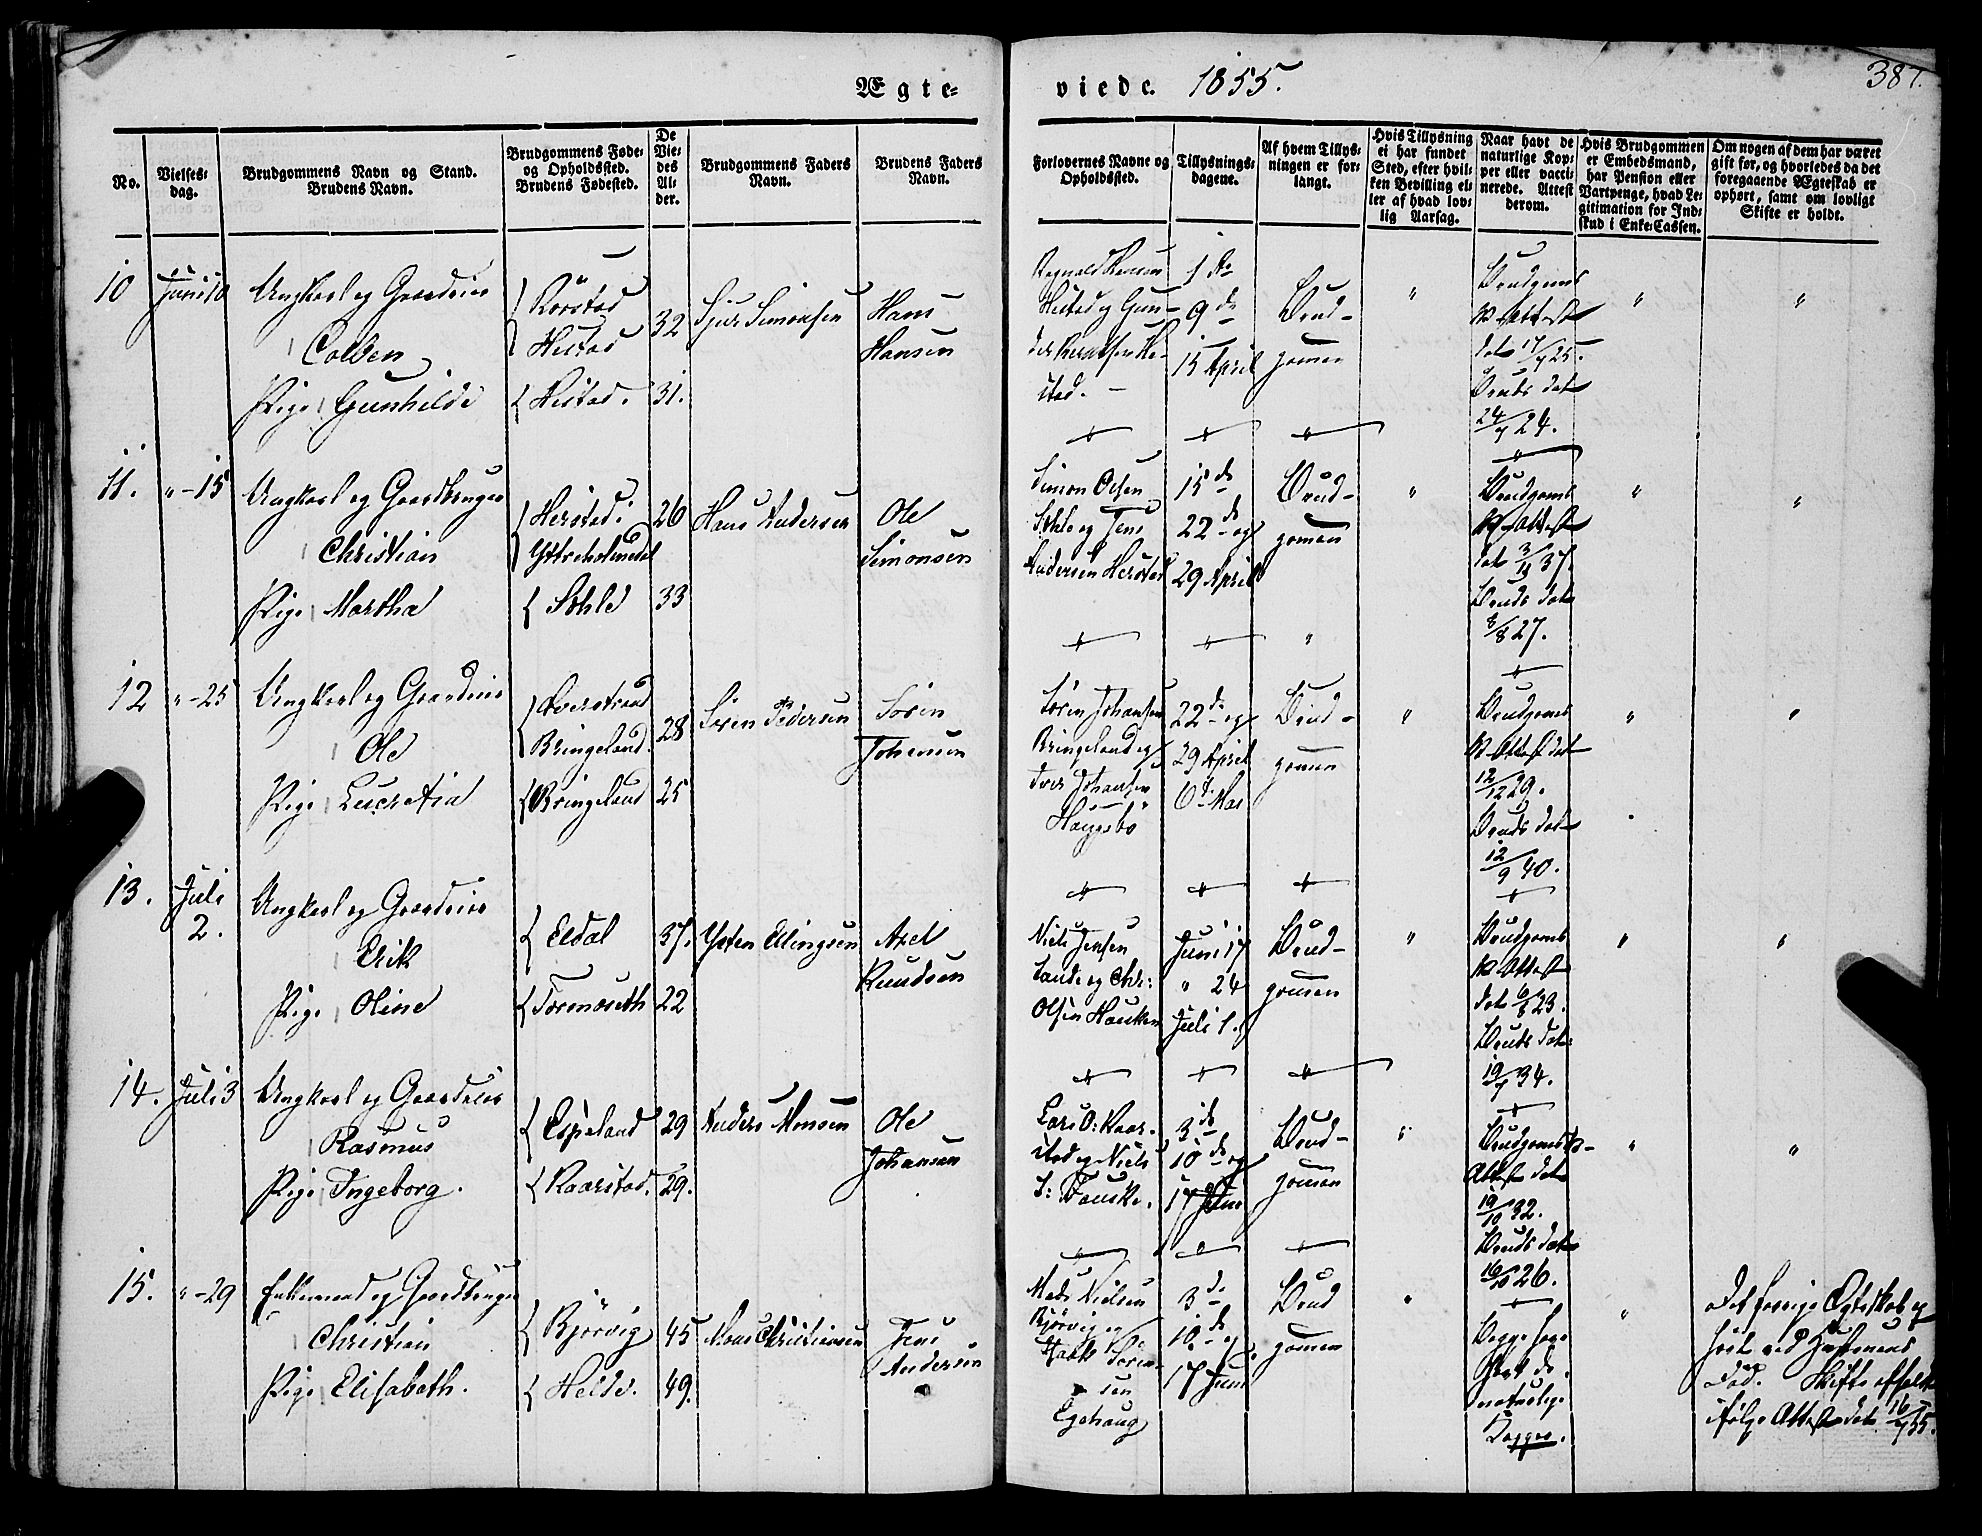 Ægte-
viede. 1855.
387.
No.
Vielses-
dag.
Brudgommens Navn og Stand.
Brudens Navn.
Brudgommens Føde-
og Opholdssted.
Brudens Fødested.
De
Vie-
des
Al-
der.
Brudgommens Faders
Navn.
Brudens Faders
Navn.
Forlovernes Navne og
Opholdssted.
Tillysnings-
dagene.
Af hvem Tillys-
ningen er for-
langt.
Hvis Tillysning
ei har fundet
Sted, efter hvil-
ken Bevilling el-
ler af hvad lov-
lig Aarsag.
Naar havt de
naturlige Kop-
per eller vacci-
nerede. Attest
derom.
Hvis Brudgommen
er Embedsmand,
har Pension eller
Vartpenge, hvad Le-
gitimation for Ind-
skud i Enke-Cassen.
Om nogen af dem har været
gift før, og hvorledes da det
foregaaende Ægteskab er
ophørt, samt om lovligt
Skifte er holdt.
10 Juni 10 Ungkarl og Gaardeier
Colben
Pige Gunhilde
Rörstad
Hestad
Hestad.
32
31.
Sjur Simonsen
Hans
Hansen
Hestad og Gun-
stad.
1ste
9de
15 April
Brud-
gomen
"
Brudgoms
V Attest
dat 17/7 25.
Bruds dat
24/7 24.
"
"
11. " - 15 Ungkarl og Gaardbruger
Christian
Pige Martha
Herstad.
Yttreholmedal
Sohle
26
33
Hans Andersen
Ole
Simonsen
Simon Olsen
Sohle og Jens
Andersen Herstad
15de
22de og
29 April
Brud-
gomen
"
Brudgoms
V Attest
dat 3/11 37.
Bruds dat
8/8 27.
"
"
12 " - 25 Ungkarl og Gaardeier
Ole
Pige Lucretia
Bringeland.
Bringeland
28
25
Sören Pedersen
Sören
Johansen
Sören Johansen
Bringeland og
Iver Johansen
Haugsbö
22de og
29 April
6te Mai
Brud-
gomen
"
Brudgoms
V Attest dat
12/12 29.
Bruds dat
12/9 40.
"
"
13. Juli
2.
Ungkarl og Gaardeier
Erik
Pige Oline
Eldal
Tormoseth
37.
22
Ysten Ellingsen
Axel
Knudsen
Niels Jensen
Sande og Chr:
Olsen Hauken
Juni 17
" 24
Juli 1.
Brud-
gomen
"
Brudgoms
V Attest
dat 6/8 23.
Bruds dat
19/7 34.
"
"
14. Juli 3 Ungkarl og Gaardeier
Rasmus
Pige Ingeborg.
Espeland
Raarstad.
29
29.
Anders Monsen
Ole
Johansen
Lars O: Raar-
stad og Niels
J: Fauske.
3de
10de og
17 Juni
Brud-
gomen
"
Brudgoms V-
Attest dat
19/10 32.
Bruds dat
16/10 26.
"
"
15. " - 29 Enkemand og Gaardbruger
Christian
Pige Elisabeth.
Bjorvig
Helde.
45
49.
Mons Christiansen
Jens
Andersen
Mads Nielsen
Bjørvig og
Sören-
sen
Egehaug
3de
10de og
17 Juni
Brud
gomen
"
Begge have
havt de
naturlige
Kopper.
"
Det forrige Ægteskab op
hørt ved Hustruens
Død. Skifte afholdt
ifølge Attest dat 16/7 55.